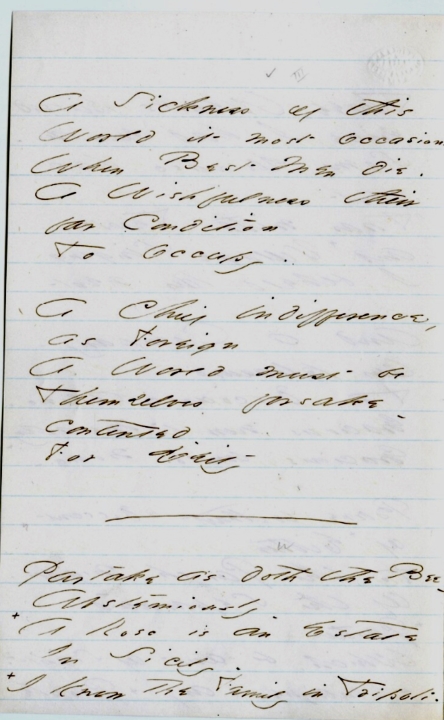 A Sickness of this
World it most occasions
When Best Men die.
A Wishfulness their
far Condition
To occupy.
A Chief indifference,
as Foreign
A World must be
Themselves forsake
contented
For Deity
Partake as doth the Bee
Abstemiously
+ A Rose is an Estate
In Sicily.
+ I know the Family in Tripoli.